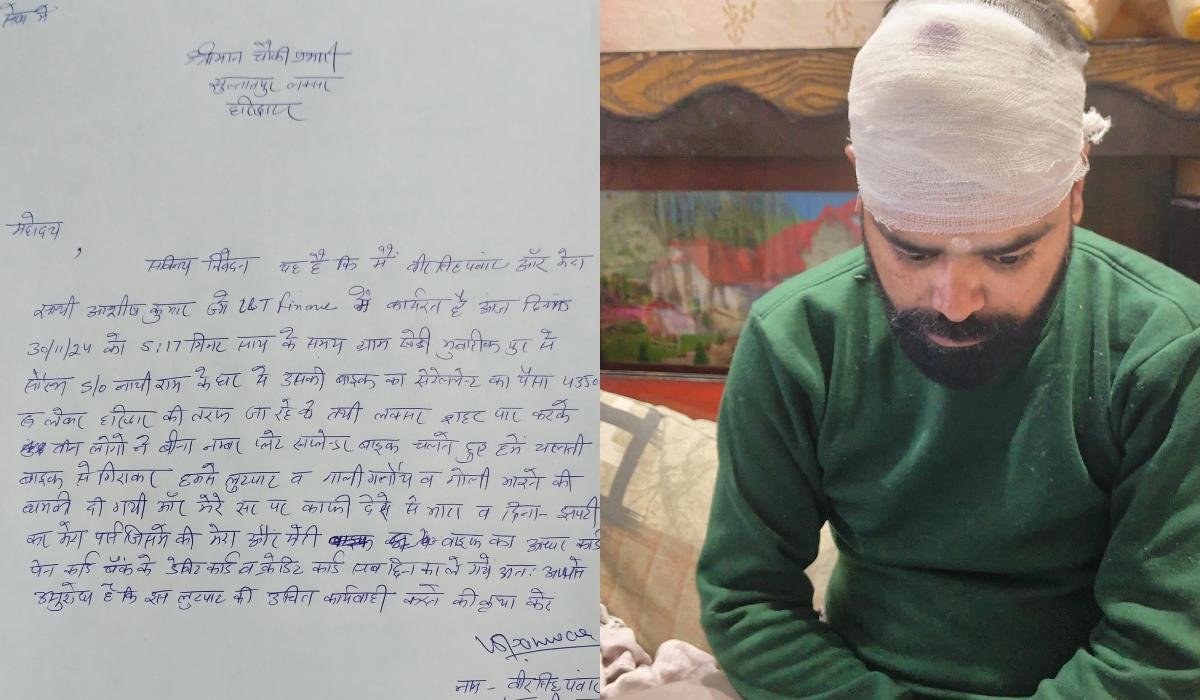 सेवा में
श्रीमान चौकी प्रभारी
सुल्तानपुर लक्सर
हरिद्वार
महोदय ,
सविनय निवेदन यह है कि मैं वीर सिंह पंवार और मेरा
साथी आशीष कुमार जो L&T Finance में कार्यरत है आज दिनांक
30/11/24 को 5:17 मिनट सायं के समय ग्राम खेडी मुबारीक पुर से
S/o नाथी राम के घर से उसकी बाइक का का पैसा 4350
रु लेकर हरिद्वार की तरफ जा रहे थे तभी लक्सर शहर पार करके
तीन लोगो ने बीना नम्बर प्लेट सप्लेन्डर बाइक चलते हुए हमें चलती
बाइक से गिराकर हमसे लुटपाट व गाली गलौच व गोली मारने की
धमकी दी गयी और मेरे सर पर काफी देसे से मारा व छिना-झपटी
कर मेरा पर्स जिसमें की मेरा और मेरी बाइक का आधार कार्ड
पेन कार्ड बैंक के डेबिट कार्ड व क्रेडिट कार्ड सब छिन कर ले गये अतः आपसे
अनुरोध है कि इस लुटपाट की उचित कार्यवाही करने की कृपा करें
नाम - वीर सिंह पंवार